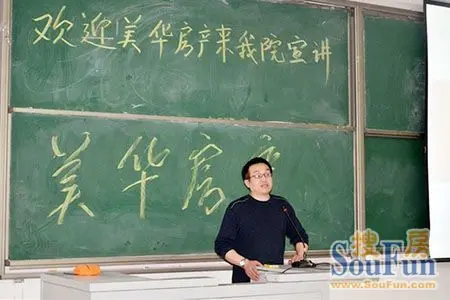 欢迎美华房产来我院宣讲
美华房
搜房
SouFun
www.SouFun.com